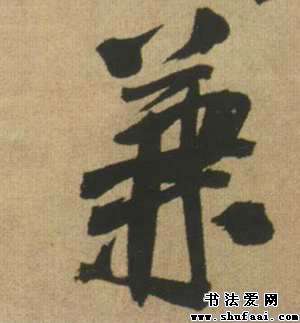 兼
书法爱网
www.shufaai.com